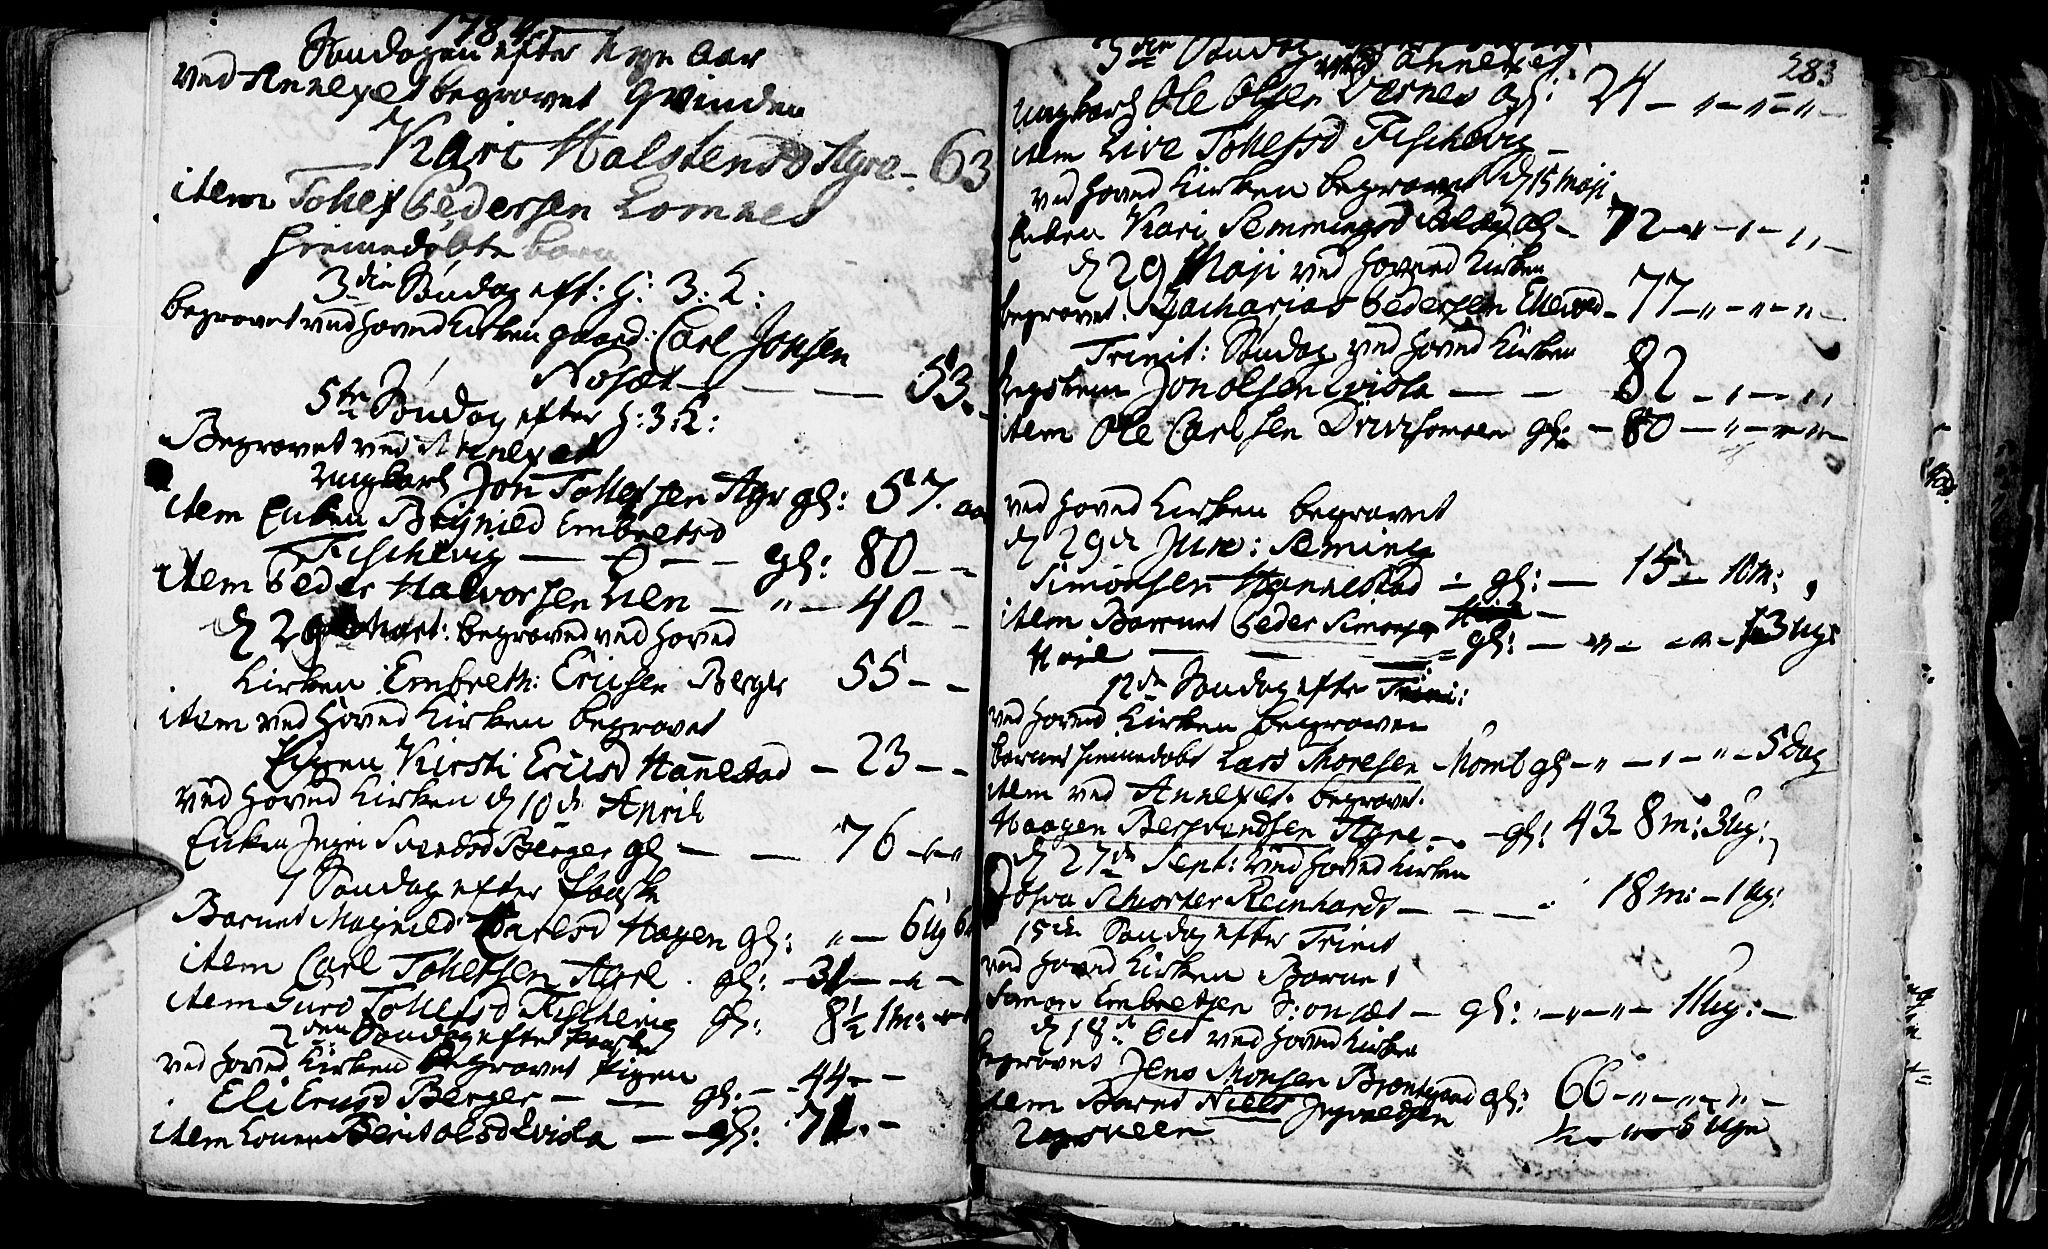 1784
Søndagen efter Nye Aar
ved Annexet begravet Qvinden
Kari Halstensd Agre - 63
item Tollef Pedersen Lomnes
hiemedøbte barn
3die Søndag eft: H: 3: K:
begravet ved Hoved Kirken gaard: Carl Jonsen
Nosæt - - - 53. -
5te Søndag efter H: 3: K:
Begravet ved Annexet
ungkarl Jon Tollefsen Agr gl: 57. aar
item Enken Brynild Embretsd
Fischevig - - - - gl: 80 - -
item Peder Halvorsen Nen - " - 40 - -
d 29 Mart: begraved ved Hoved
Kirken Embreth: Ericsen Berger 55 - -
item ved Hoved Kirken begravet
Pigen Kirsti Ericsd Hannestad - 23 - -
ved Hoved Kirken d 10de April
Enken Inger Svendsd Berger gl - - 76 - - -
1 Søndag efter Paaske
Barnet Magnild Carlsd Hagen gl: " - 6 Ug 6
item Carl Tollefsen Agre . gl: - 31 - - -
item Guro Tollefsd Fischevig gl: 8½ 1 m: - -
2den Søndag efter Paaske
ved Hoved Kirken begravet Pigen
Eli Ericsd Berger - - gl. - - 44 - -
item Konen Berit Olsd Qviola - - gl: 71. -
283
3die Søndag
ved Annexet
ungkarl Ole Olsen Værnes gl: 24 - " - " - " -
item Live Tollefsd Fischevig -
ved Hoved Kirken begravet d 15 Maji
Enken Kari Semmingsd - 72 - " - " - " -
d 29 Maji ved Hoved Kirken
begravet: Zacharias Pedersen - 77 - " - " - " -
Trinit: Søndag ved Hoved Kirken
Jon Olsen Qviola - - 82 - " - " -
item Ole Carlsen gl: - 80 - " - " - " -
ved Hoved Kirken begravet
d 29de Jun: Seming
Simonsen Hannestad - gl: - 15 - 10 m: ,
item Barnet Peder Simonsen -
- - - gl: - " - " - 13 Ug:
12de Søndag efter Trini:
ved Hoved Kirken begraven
barnet hiemedøbt Lars Moresen Momb gl - " - " - " - 5 Dag
item ved Annexet begravet
Haagen Bersvendsen Agre - - gl: 43 - 8 m: 3 Ug:
d 27de Sept: ved Hoved Kirken
Schorter Reinhardt - - - 18 m: - 1 Ug:
15de Søndag efter Trinit
ved Hoved Kirken Barnet
Simon Embretsen - gl: - " - " - 11 Ug: -
d 18de Oct ved Hoved Kirken
begravet Jens Monsen gl: 66 - " - " - " -
item Barnet Niels Ingvaldsen